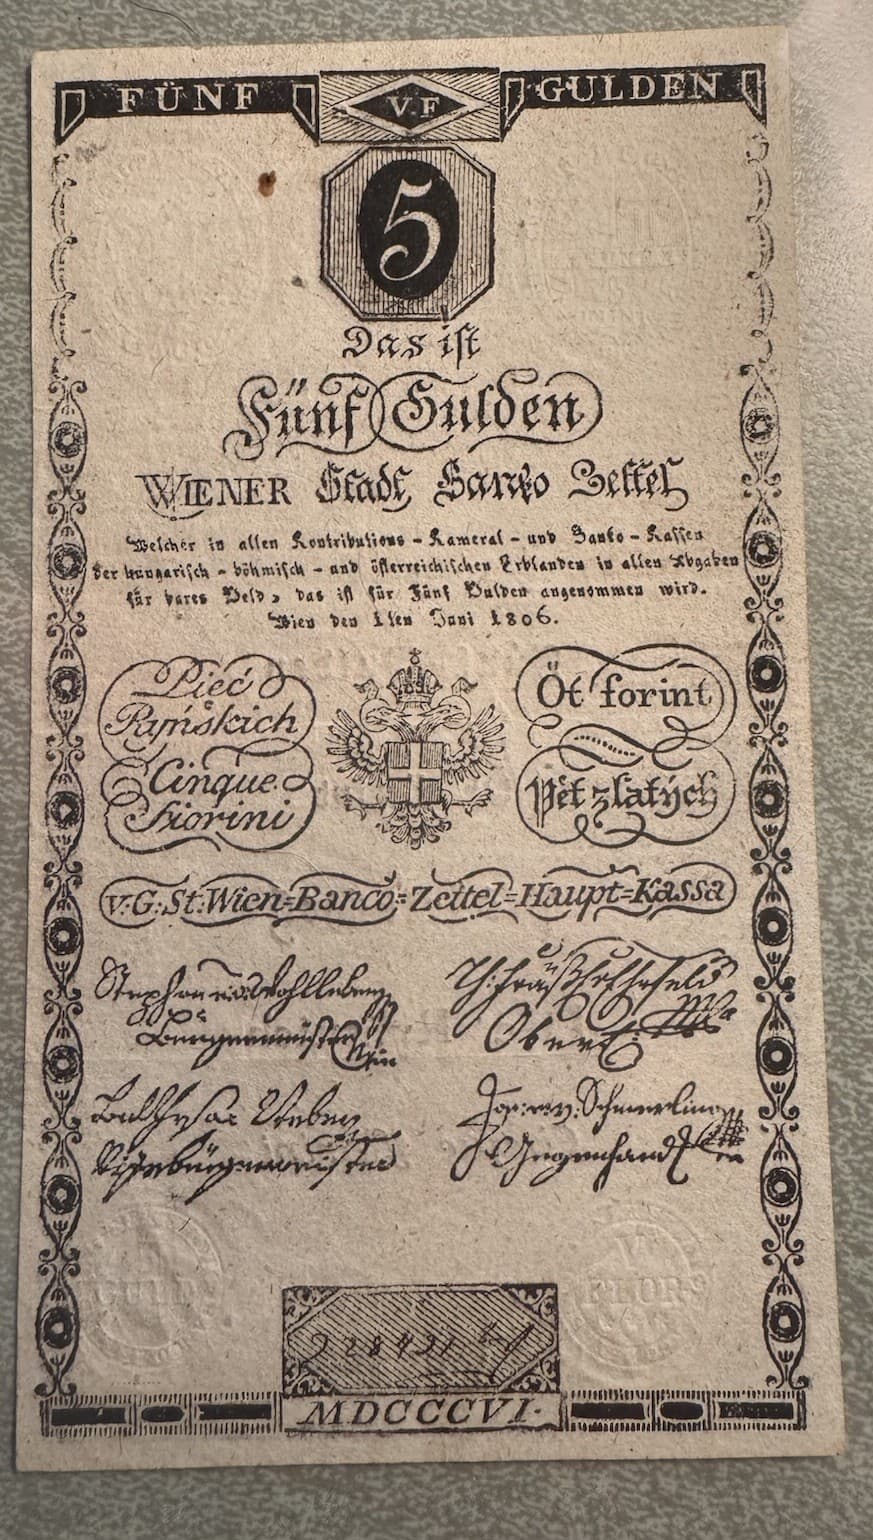 FÜNF V.F GULDEN
5
Das ist
Fünf Gulden
WIENER Stadt Banko Zettel
Welcher in allen Kontributions - Kameral - und Banko - Kassen
der hungarisch - böhmisch - und österreichischen Erblanden in allen Abgaben
für bares Geld, das ist für Fünf Gulden angenommen wird.
Wien den 1ten Juni 1806.
Pieć
Ryńskich
Cinque
Fiorini
Öt forint
Pět zlatých
v. G. St. Wien=Banco=Zettel=Haupt=Kassa
Stephan
Burgermeister
Jos: Schmerling
Gegenhand
GULD
VF
FLOR
228421
MDCCCVI.